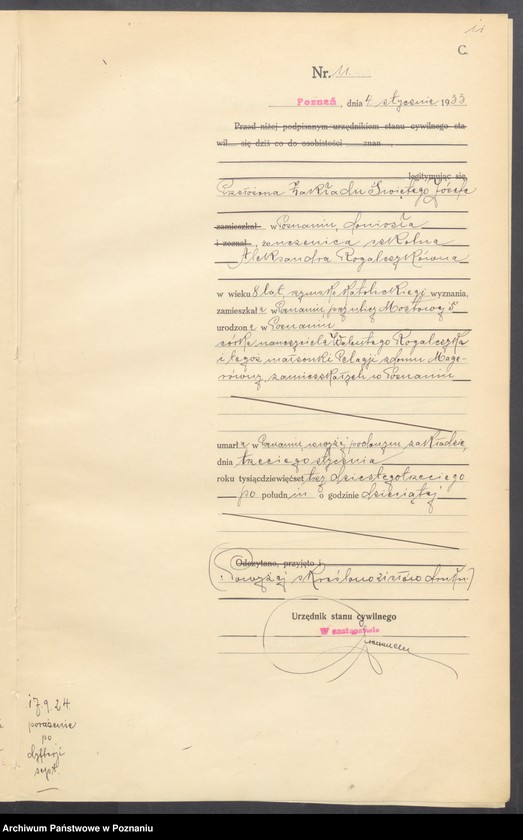 11
C.
Nr. 11.
Poznań, dnia 4 stycznia 1933
Przed niżej podpisanym urzędnikiem stanu cywilnego sta-
wił się dziś co do osobistości znan ,
legitymując się
Przełożona Zakładu Świętego Józefa
zamieszkał w Poznaniu, doniosła
i zeznał , że uczenica szkolna
Aleksandra Rogalczykówna
w wieku 8 lat, rzymsko katolickiego wyznania,
zamieszkała w Poznaniu, przy ulicy Mostowej 5
urodzona w Poznaniu
córka nauczyciela Walentego Rogalczyka
i tegoż małżonki Pelagji z domu
zamieszkałych w Poznaniu
umarła w Poznaniu, w wyżej podanym zakładzie,
dnia trzeciego stycznia
roku tysiącdziewięćset trzydziestegotrzeciego
po południu o godzinie dziesiątej
Odczytano, przyjęto i
Powyżej skreślono druku.
Urzędnik stanu cywilnego
W zastępstwie
17.9.24
porażenie
po
dyfterji
sept.
Archiwum Państwowe w Poznaniu